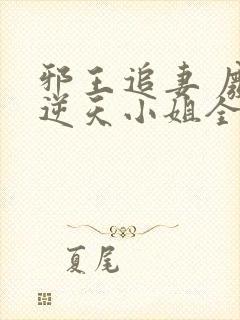 邪王追妻
逆天小姐全
夏尾